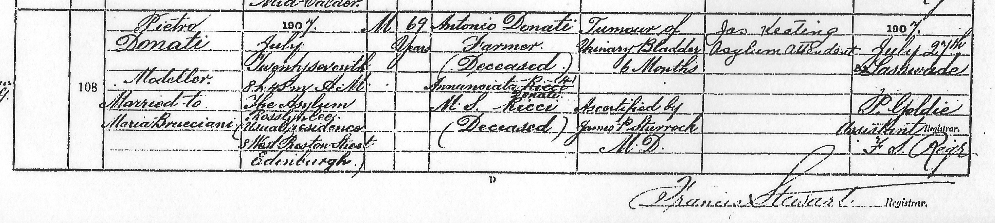 108
Pietro
Donati
Modeller.
Married to
Maria Brucciani
1907.
July
Twentyseventh
8h 45m A.M.
The Asylum
Rosslynlee
(Usual residence
8 West Preston Street
Edinburgh)
M
69
Years
Antonio Donati
Farmer
(Deceased)
Annunciata
Donati
M.S. Ricci
(Deceased)
Tumour of
Urinary Bladder
6 Months
As certified by
James P. Sturrock
M.D.
Jas Keating
Asylum Attendant
1907.
July 27th
Lasswade
P. Goldie
Assistant Registrar.
F. S. Regr
D
Francis Stewart Registrar.